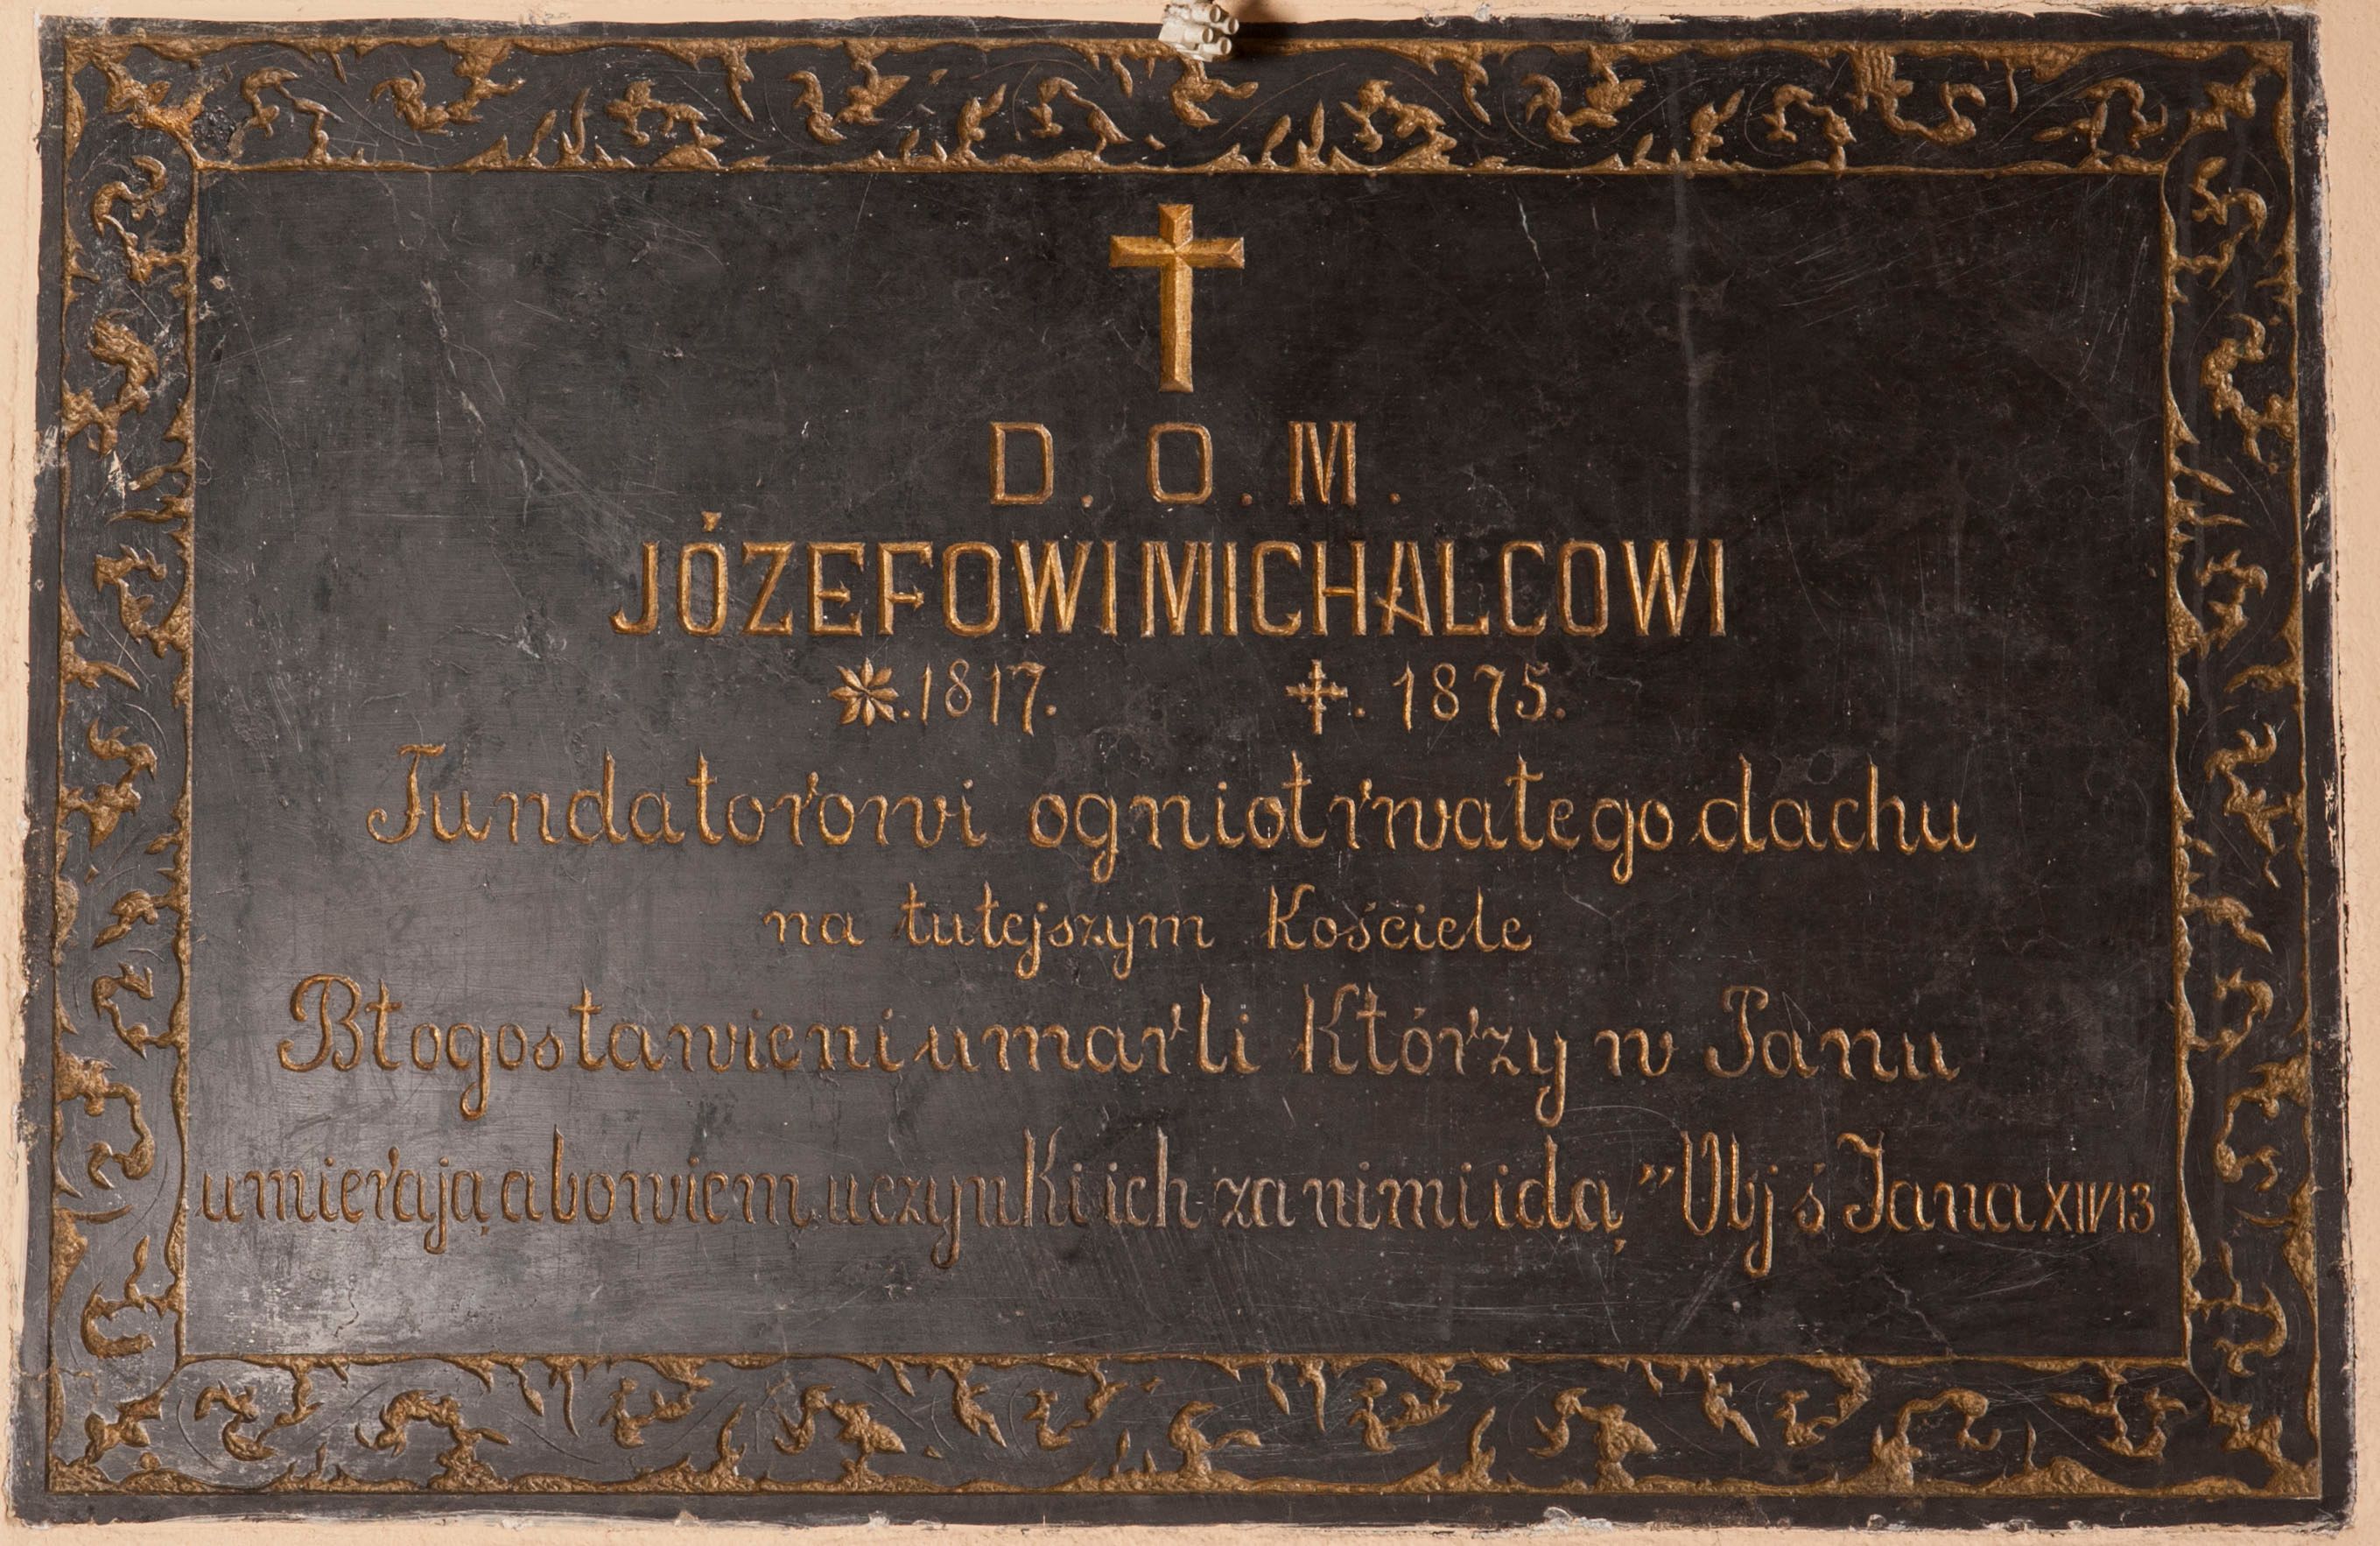 D. O. M.
JÓZEFOWI MICHALCOWI
*. 1817. ✝. 1875.
Fundatorowi ogniotrwałego dachu
na tutejszym Kościele
Błogosławieni umarli Którzy w Panu
umierają abowiem uczynki ich za nimi idą" Obj ś Jana XIV13